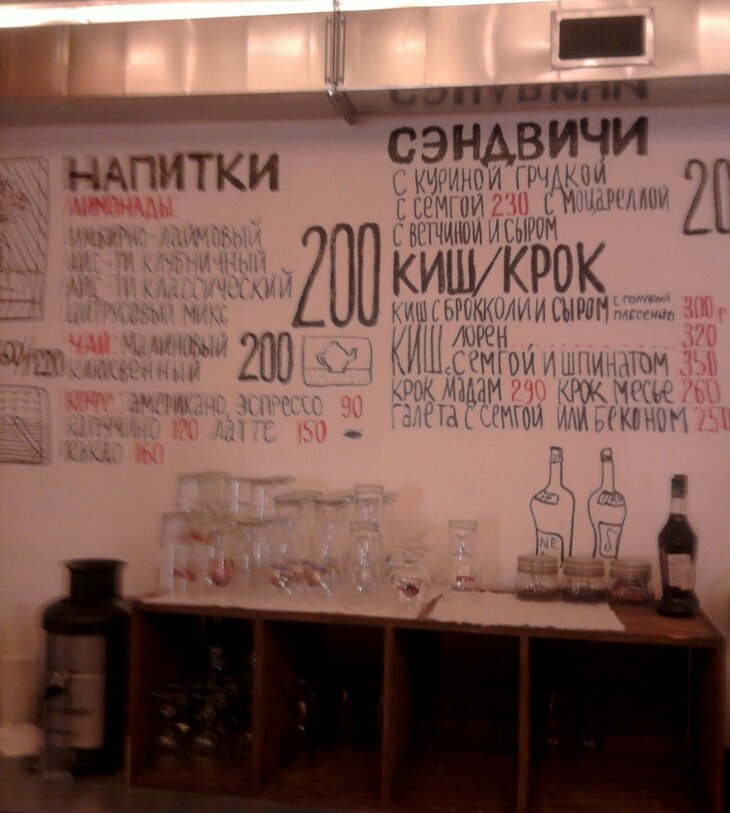 НАПИТКИ
ЛИМОНАДЫ:
ИМБИРНО-ЛАЙМОВЫЙ
АЙС-ТИ КЛУБНИЧНЫЙ
АЙС-ТИ КЛАССИЧЕСКИЙ
ЦИТРУСОВЫЙ МИКС
200
ЧАЙ: МАЛИНОВЫЙ
КЛЮКВЕННЫЙ
200
КОФЕ: АМЕРИКАНО, ЭСПРЕССО 90
КАПУЧИНО 120 ЛАТТЕ 150
КАКАО 160
СЭНДВИЧИ
С КУРИНОЙ ГРУДКОЙ
С СЕМГОЙ 230 С МОЦАРЕЛЛОЙ
С ВЕТЧИНОЙ И СЫРОМ
КИШ/КРОК
КИШ С БРОККОЛИ И СЫРОМ С ГОЛУБОЙ ПЛЕСЕНЬЮ 300 Р
КИШ ЛОРЕН 320
С СЕМГОЙ И ШПИНАТОМ 350
КРОК МАДАМ 290 КРОК МЕСЬЕ 260
ГАЛЕТА С СЕМГОЙ ИЛИ БЕКОНОМ 250
NE